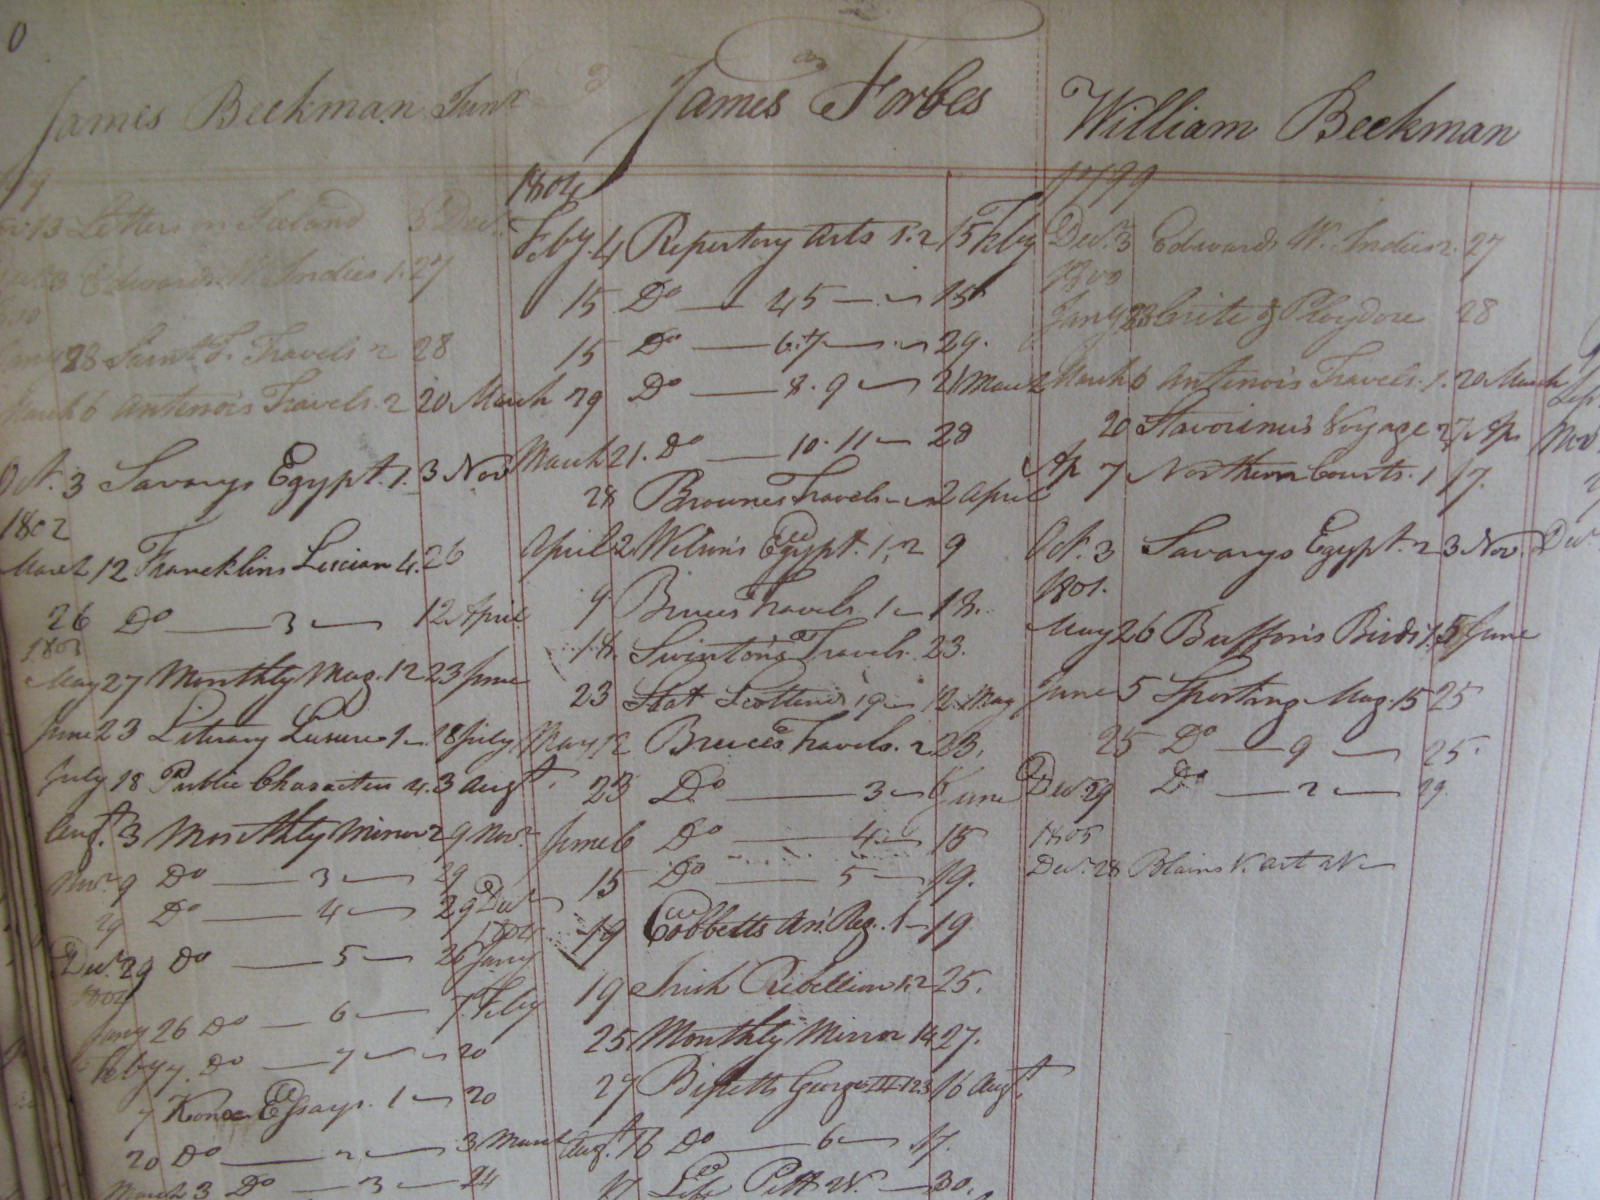 0
James Beekman Junr
Novr 13 Letters on Iceland 3 Decr
Decr 3 Edwards W. Indies 1. 27
1800
Jany 28 Travels 2 28
March 6 Antenors Travels. 2 20 March
Oct. 3 Savarys Egypt. 1. 3 Nov
1802
March 12 Francklins Lucian 4. 26
26 Do — 3 — 12 April
1803
May 27 Monthly Mag. 12 23 June
June 23 Literary Leisure 1 — 18 July
July 18 Public Characters 4. 3 Augt.
Augt. 3 Monthly Mirror 2 9 Novr.
Novr. 9 Do — 3 — 29
29 Do — 4 — 29 Decr
1804
Decr. 29 Do — 5 — 26 Jany
1804
Jany 26 Do — 6 — 7. Feby
Feby 7. Do — 7 — 20
7 Knox Essays. 1 — 20
20 Do — 2 — 3 March
March 3 Do — 3 — 24
James Forbes
1804
Feby. 4 Repertory Arts 1. 2 15 Feby
15 Do — 4 5 — 15
15 Do — 6. 7 — 29.
29 Do — 8. 9 — 21 March
March 21. Do — 10. 11 — 28
28 Brownes Travels — 2 April
April 2 Wilson's Egypt. 1. 2 9
9 Bruces Travels. 1 — 18.
18. Swintons Travels. 23.
23 Stat Scotland 19 — 12 May
May 12 Bruces Travels. 2 23.
23 Do — 3 — 6 June
June 6 Do — 4 — 15
15 Do — 5 — 19.
19 Cobbetts An. Reg. 1 — 19
19 Irish Rebellion 1. 2 25.
25 Monthly Mirror 14 27.
27 Bissetts George III 1 2 3 16 Augt.
Augt. 16 Do — 6 — 17.
17 Life Pitt — 30.
William Beekman
1799
Decr. 3 Edwards W. Indies 2. 27
1800
Jany 28 Crite & 28
March 6 Antenors Travels. 1. 20 March
20 Stavorinus Voyage 27 Ap.
Ap 7 Northern Courts. 1 17.
Oct. 3 Savarys Egypt. 2 3 Nov.
1801.
May 26 Buffon's Birds 1. 5 June
June 5 Sporting Mag. 15 25
25 Do — 9 — 25.
Decr. 29 Do — 2 — 29.
1805
Decr. 28 Blains V. Art
Nov
Decr